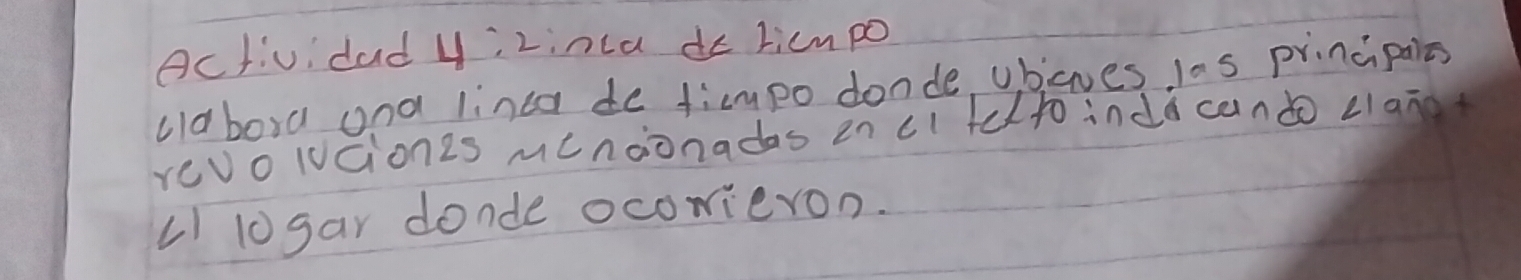 Actividad 4: Linea de tiempo
elabora una linea de tiempo donde ubiques las principales
revoluciones mencionadas en el texto indicando el año y
el lugar donde ocorrieron.